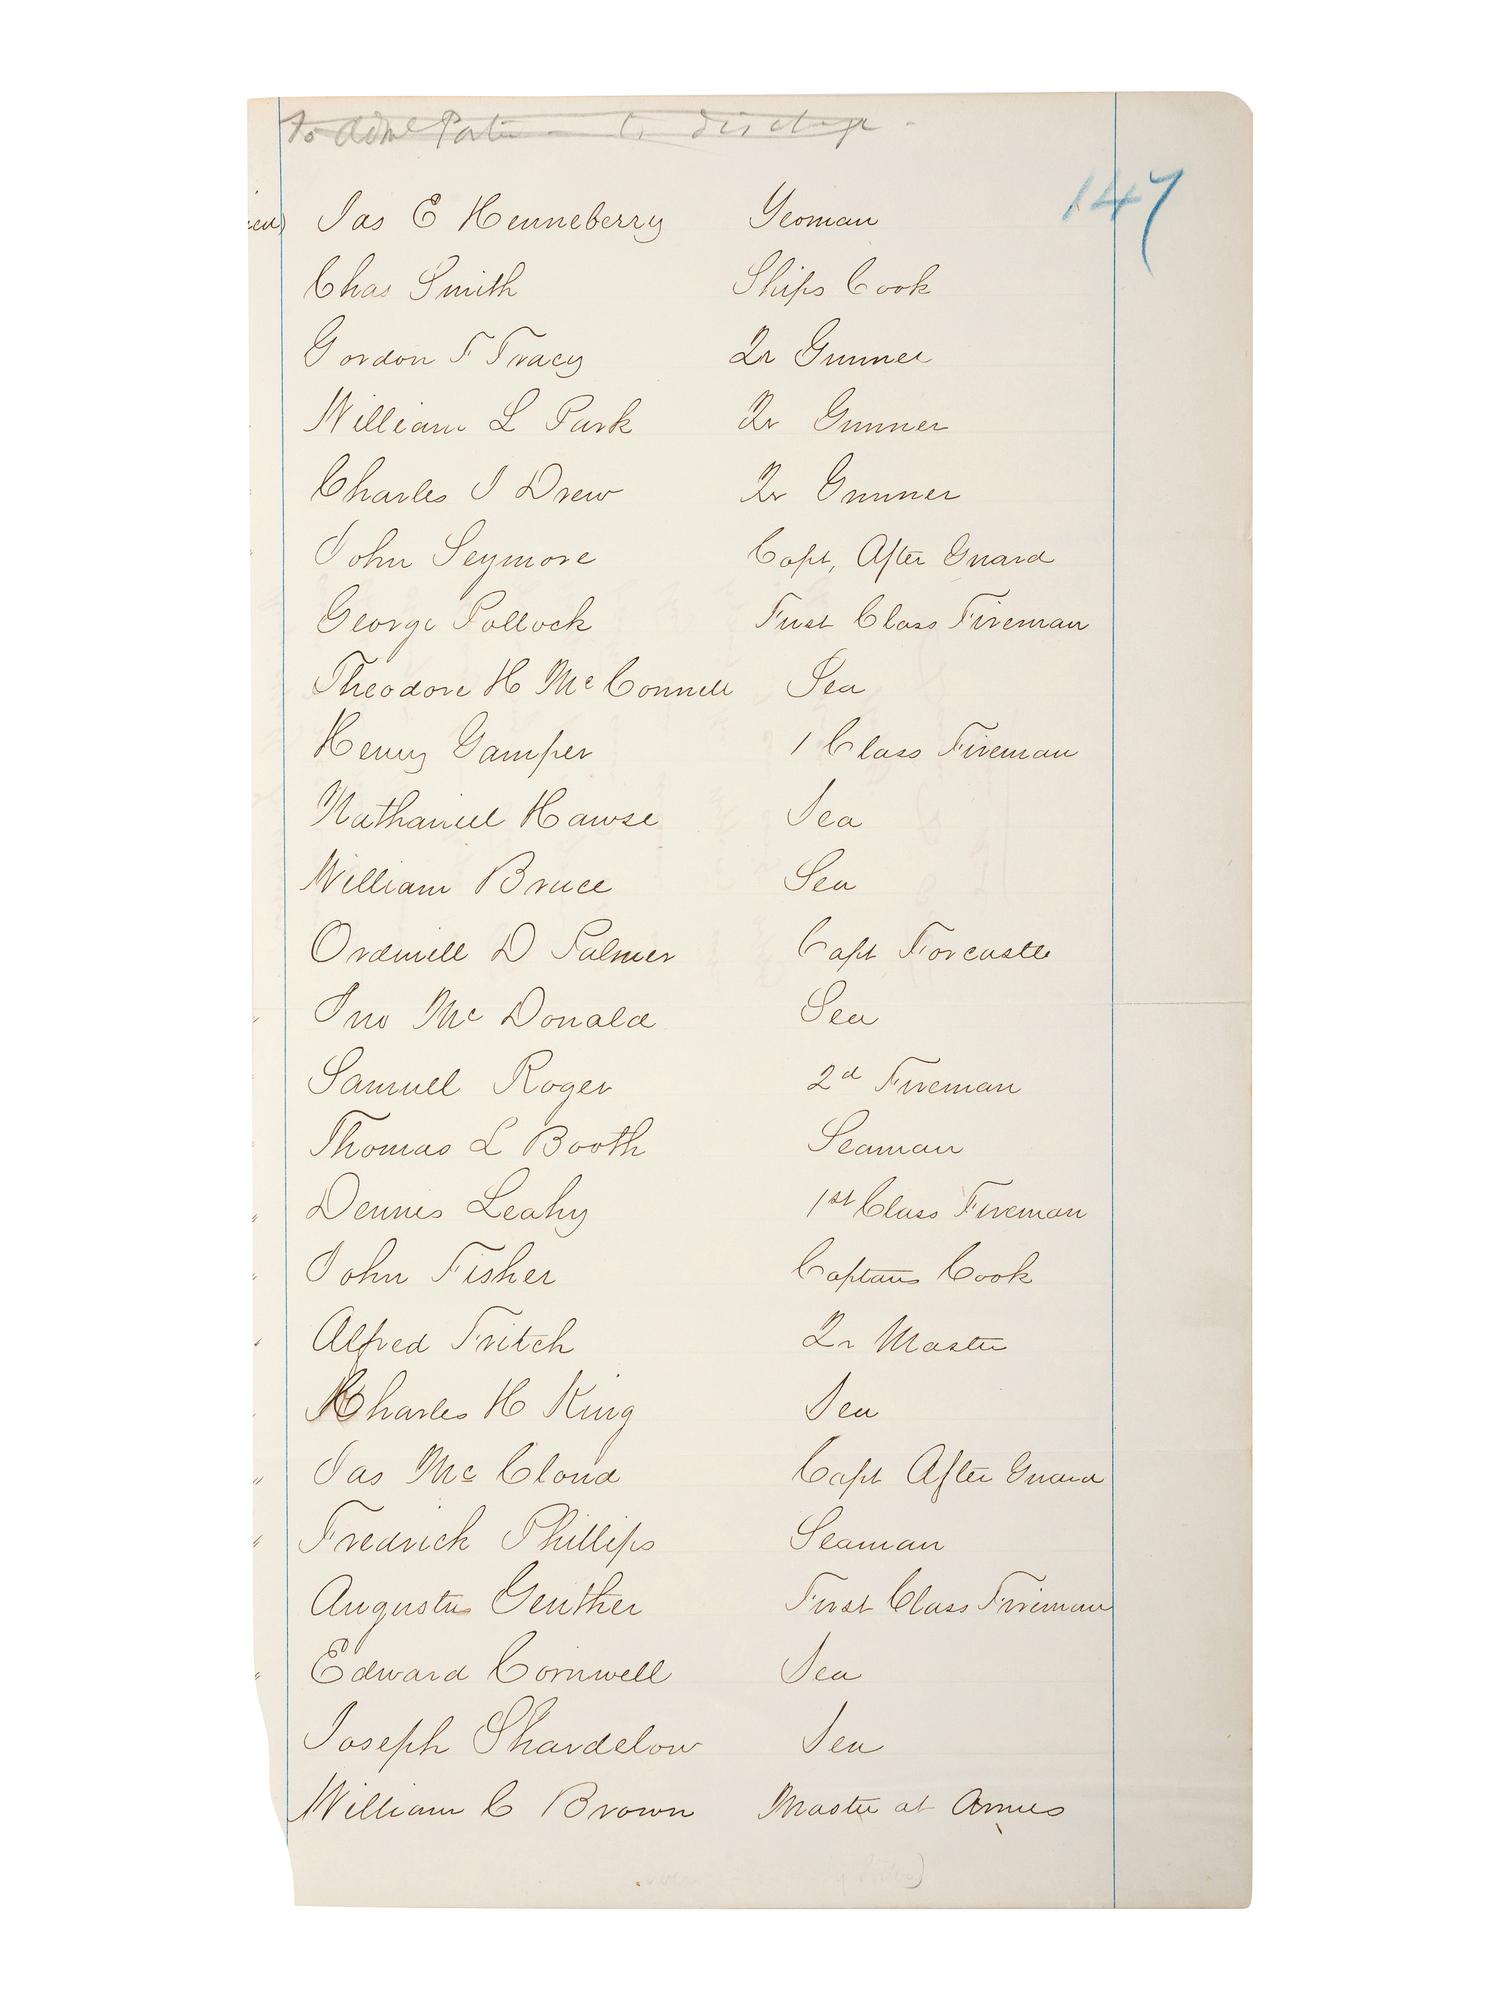 to Adml Porter - to discharge -
147
Jas E Henneberry Yeoman
Chas Smith Ships Cook
Gordon F Tracy Qr Gunner
William L Park Qr Gunner
Charles J Drew Qr Gunner
John Seymore Capt, After Guard
George Pollock First Class Fireman
Theodore H McConnell Sea
Henry Gamper 1 Class Fireman
Nathaniel Hawse Sea
William Bruce Sea
Ordwill D Palmer Capt Forcastle
Jno McDonald Sea
Samuel Roger 2d Fireman
Thomas L Booth Seaman
Dennis Leahy 1st Class Fireman
John Fisher Captains Cook
Alfred Fritch Qr Master
Charles H King Sea
Jas McCloud Capt After Guard
Fredrick Phillips Seaman
Augustus Genther First Class Fireman
Edward Cornwell Sea
Joseph Shardelow Sea
William C Brown Master at Arms